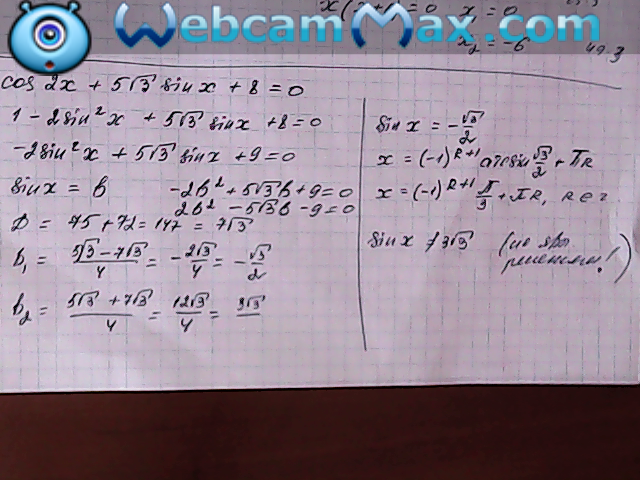 WebcamMax.com
x₂ = -6
cos 2x + 5√3 sin x + 8 = 0
1 - 2sin²x + 5√3 sin x + 8 = 0
-2sin²x + 5√3 sin x + 9 = 0
sin x = b -2b² + 5√3b + 9 = 0
2b² - 5√3b - 9 = 0
D = 75 + 72 = 147 = 7√3
b₁ = (5√3 - 7√3)/4 = -2√3/4 = -√3/2
b₂ = (5√3 + 7√3)/4 = 12√3/4 = 3√3
sin x = -√3/2
x = (-1)ᵏ⁺¹ arcsin √3/2 + πk
x = (-1)ᵏ⁺¹ π/3 + πk, k ∈
sin x ≠ 3√3